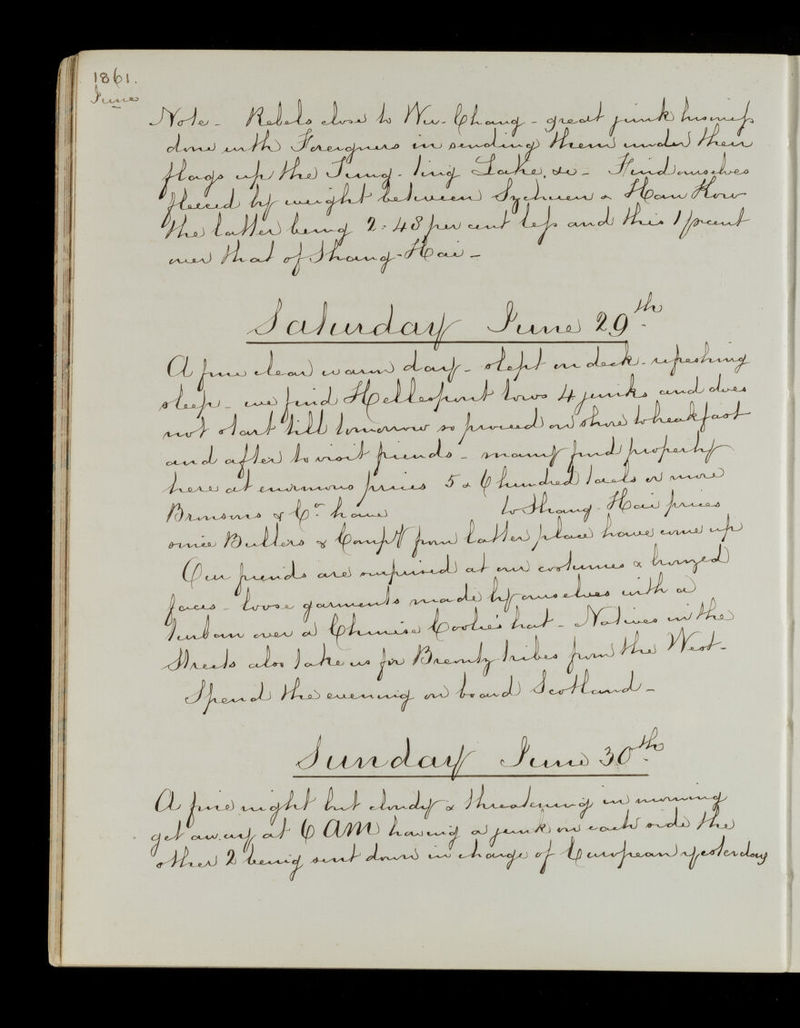 1861.
June
Note - Rebels close to Wu-Chang - great junk business
done with Foreigners in sending them under their
flags up the Tung-ting Lake, &c - Find ourselves
fleeced by weight between Szchuen & Han Kow
the latter being 2.48 per cent less and this 1 pr cent
over that of Shang-Hai -
Saturday June 29th
A fine clear warm day - slept on deck - refreshing
sleep - we find Hellespont tows 4 junks and does
not start till tomorrow so proceed on shore to breakfast
and after to visit friends - many find property
here at enormous prices 5 & 6 hundred taels or more
Bronsons & Co. have to Shang-Hai prices
since Butlers & Compy from latter place have come up
Our friends are surprised at our costumes & bronzed
faces - loose garments made by ourselves with a
turban over a Chinese Coolie's hat - Natives in the
Streets also take us for Breontz tribes from the West -
Spend the evening on board Scotland -
Sunday June 30th
A fine night but cloudy & threatening in morning
get away at 6 AM having a junk on each side the
other 2 being sent down in charge of European yesterday